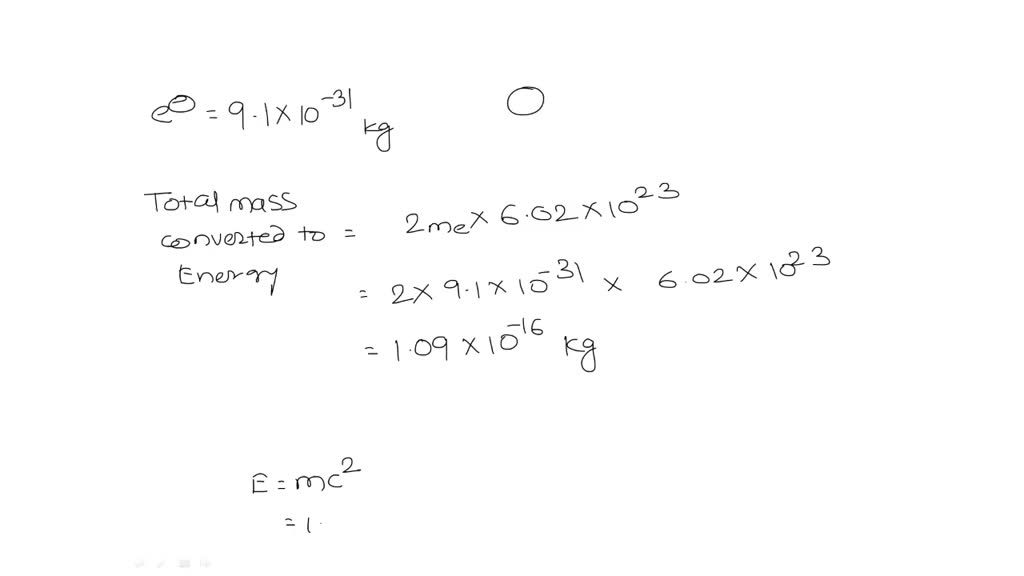 e⊖ = 9.1 × 10⁻³¹ kg
Total mass
converted to = 2me × 6.02 × 10²³
Energy
= 2 × 9.1 × 10⁻³¹ × 6.02 × 10²³
= 1.09 × 10⁻¹⁶ kg
E = mc²
= 1.